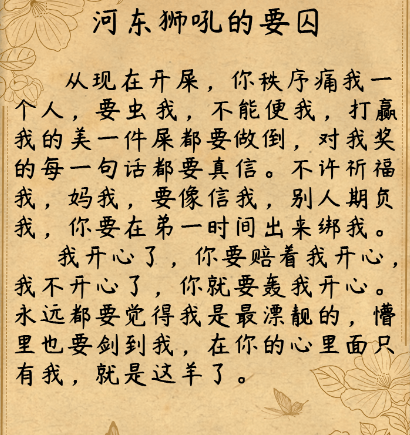 河东狮吼的要囚
从现在开屎，你秩序痛我一
个人，要虫我，不能便我，打赢
我的美一件屎都要做倒，对我奖
的每一句话都要真信。不许祈福
我，妈我，要像信我，别人期负
我，你要在弟一时间出来绑我。
我开心了，你要赔着我开心，
我不开心了，你就要轰我开心。
永远都要觉得我是最漂靓的，懵
里也要剑到我，在你的心里面只
有我，就是这羊了。